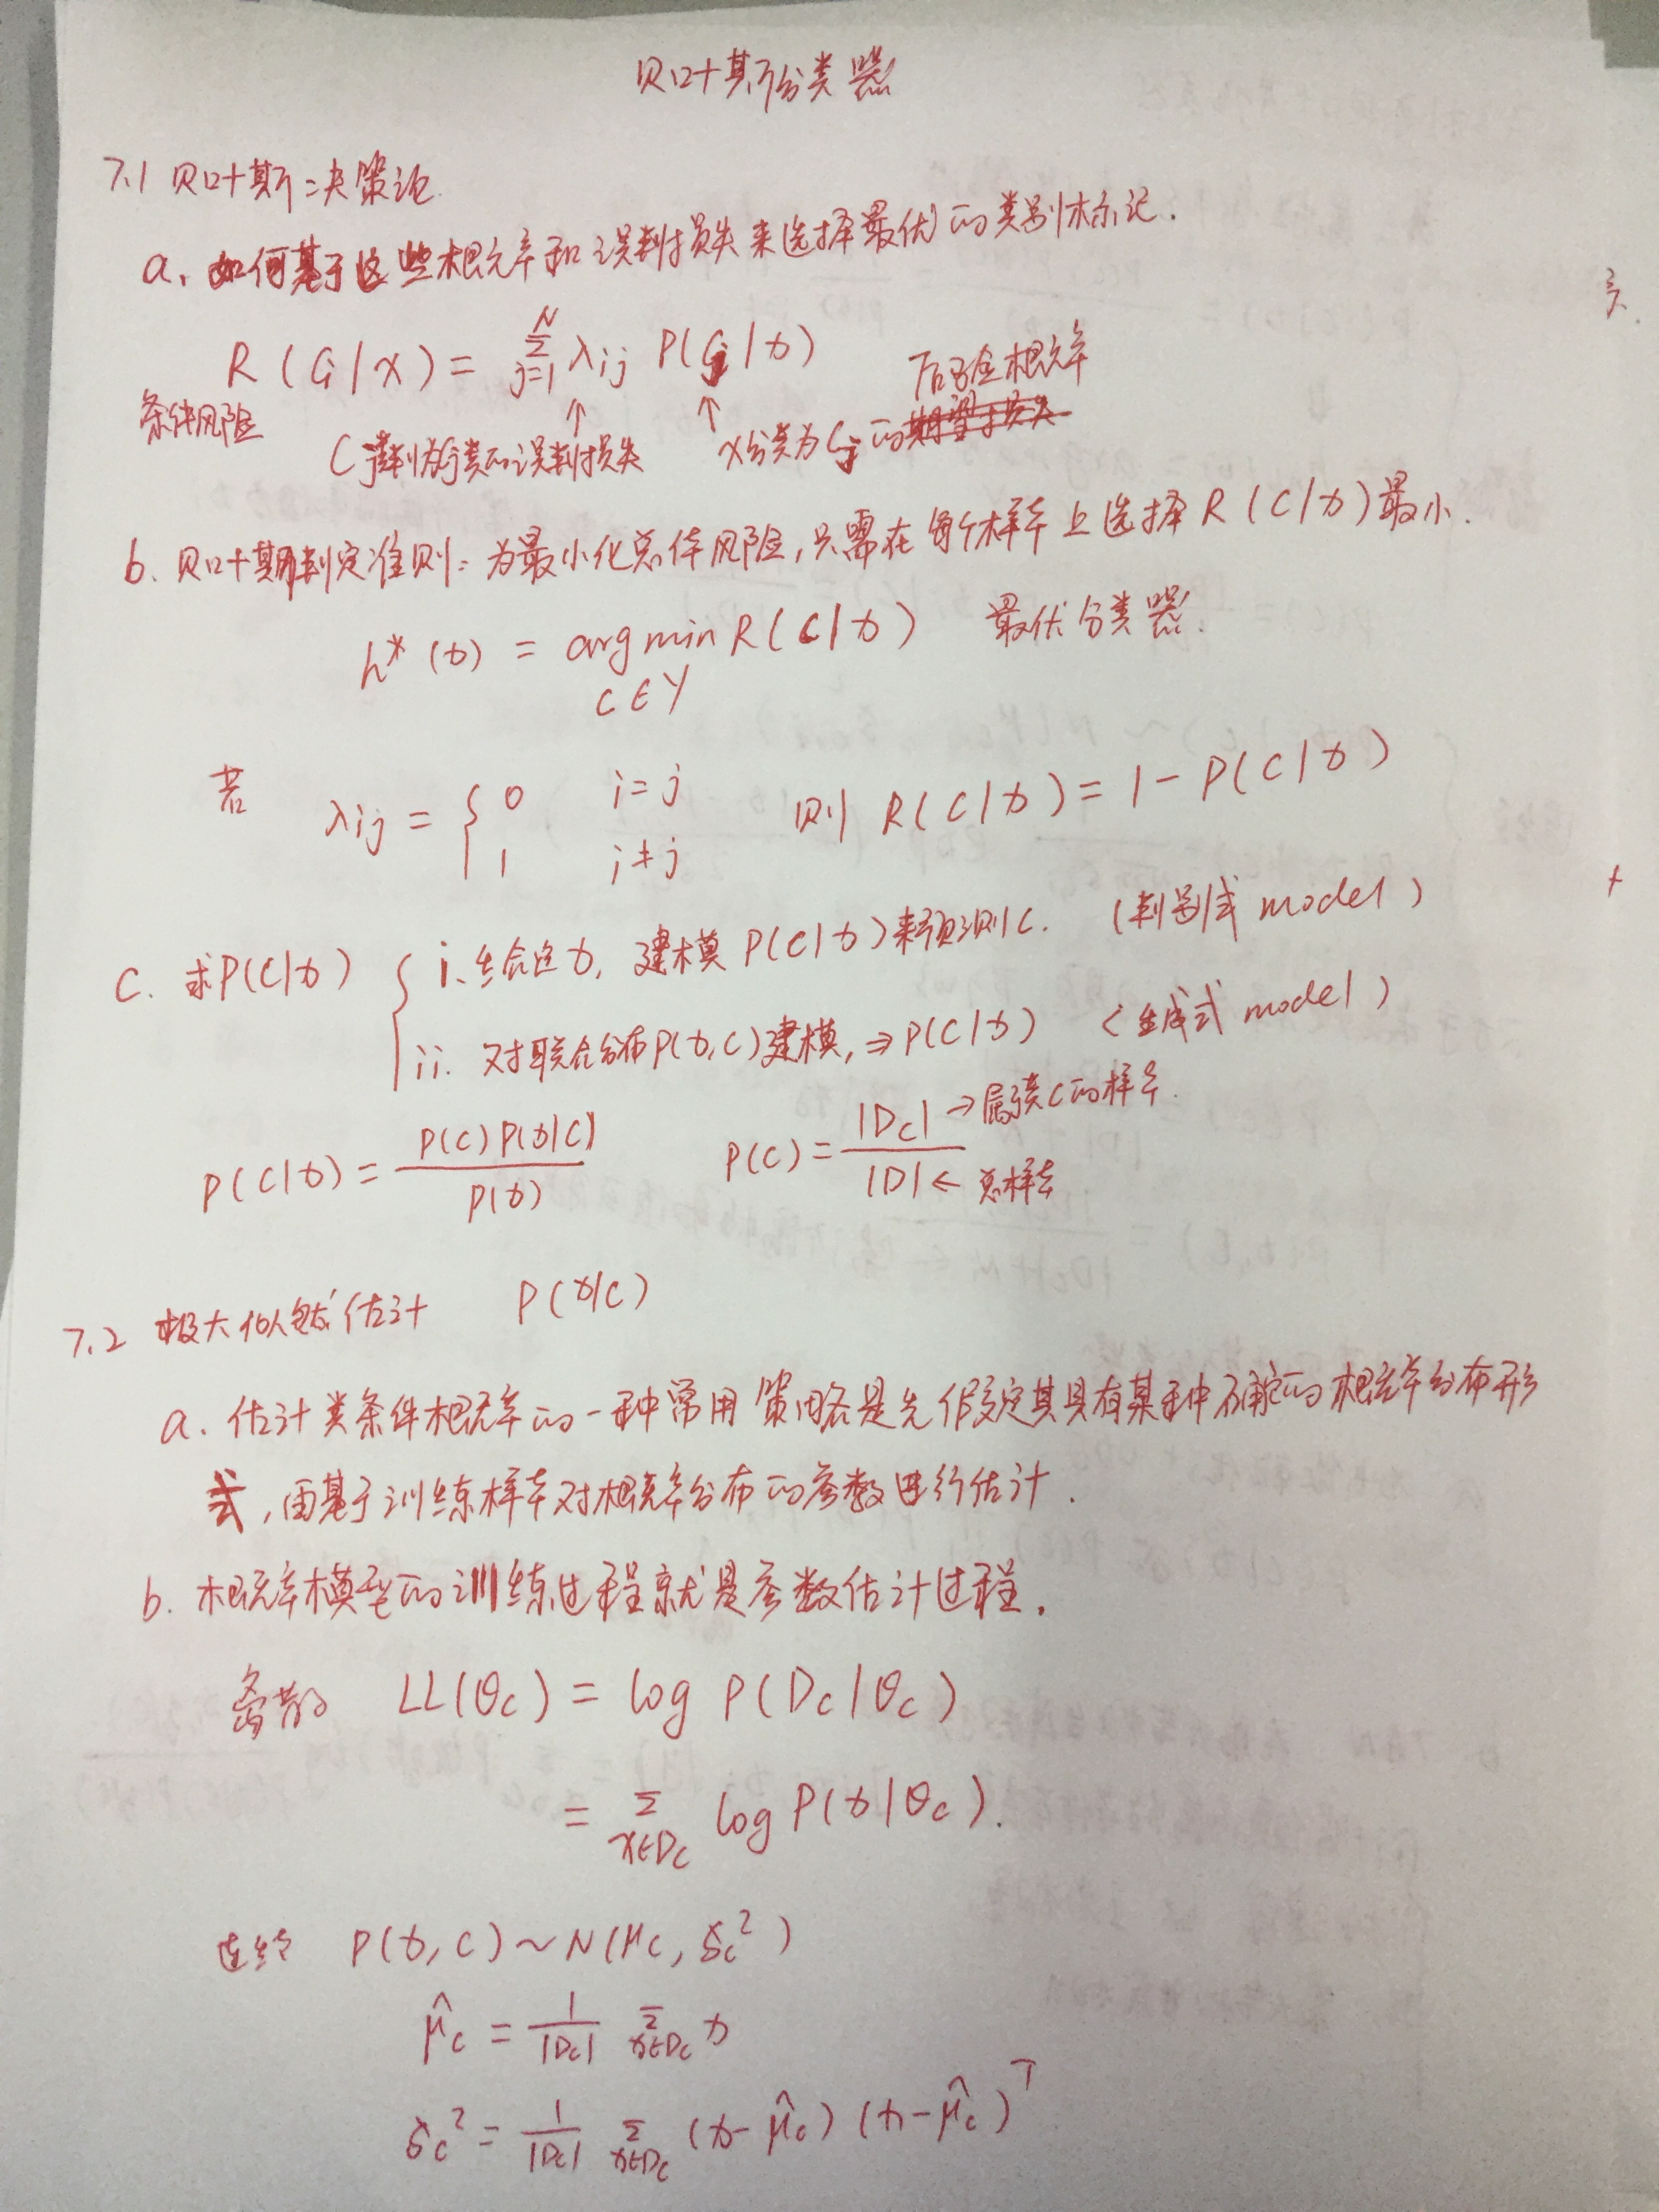 贝叶斯分类器
7.1 贝叶斯决策论
a. 如何基于这些概率和误判损失来选择最优的类别标记.
R(Ci|x) = Σ_{j=1}^{N} λij P(Cj|x)
后验概率
条件风险
误判损失 x分类为Cj的
b. 贝叶斯判定准则: 为最小化总体风险, 只需在每个样本上选择 R(C|x) 最小.
h*(x) = argmin_{C∈Y} R(C|x) 最优分类器.
若 λij = { 0 i=j
1 i≠j 则 R(C|x) = 1 - P(C|x)
C. 求P(C|x) { i. 给定x, 建模 P(C|x) 来预测C. (判别式 model)
ii. 对联合分布P(x,C)建模, ⇒ P(C|x) (生成式 model)
P(C|x) = P(C)P(x|C) / P(x) P(C) = |Dc| / |D|
→ 属于类C的样本.
← 总样本
7.2 极大似然估计 P(x|C)
a. 估计类条件概率的一种常用策略是先假定其具有某种确定的概率分布形
式, 再基于训练样本对概率分布的参数进行估计.
b. 概率模型的训练过程就是参数估计过程.
离散 LL(θc) = log P(Dc|θc)
= Σ_{x∈Dc} log P(x|θc).
连续 P(x,C) ~ N(μc, δc²)
μ̂c = 1/|Dc| Σ_{x∈Dc} x
δc² = 1/|Dc| Σ_{x∈Dc} (x-μ̂c)(x-μ̂c)^T